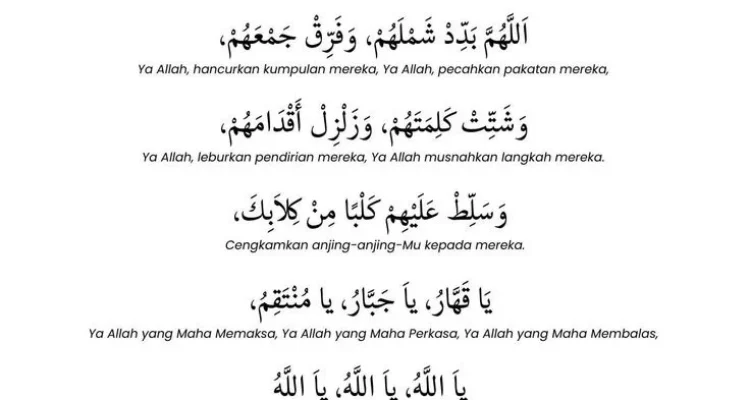 اَللَّهُمَّ بَدِّدْ شَمْلَهُمْ، وَفَرِّقْ جَمْعَهُمْ،
Ya Allah, hancurkan kumpulan mereka, Ya Allah, pecahkan pakatan mereka,
وَشَتِّتْ كَلِمَتَهُمْ، وَزَلْزِلْ أَقْدَامَهُمْ،
Ya Allah, leburkan pendirian mereka, Ya Allah musnahkan langkah mereka.
وَسَلِّطْ عَلَيْهِمْ كَلْبًا مِنْ كِلاَبِكَ،
Cengkamkan anjing-anjing-Mu kepada mereka.
يَا قَهَّارُ، ياَ جَبَّارُ، يا مُنْتَقِمُ،
Ya Allah yang Maha Memaksa, Ya Allah yang Maha Perkasa, Ya Allah yang Maha Membalas,
ياَ اللَّهُ، ياَ اللَّهُ، ياَ اللَّهُ